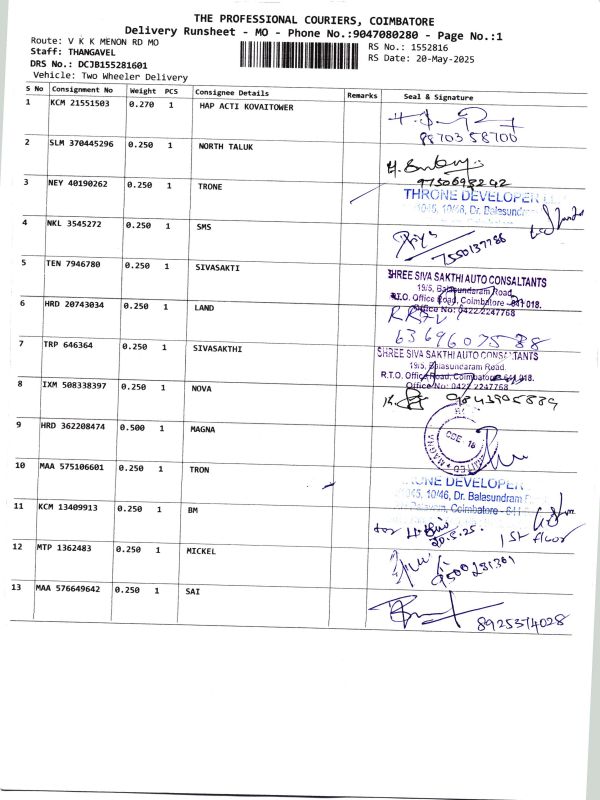 THE PROFESSIONAL COURIERS, COIMBATORE
Delivery Runsheet - MO - Phone No.:9047080280 - Page No.:1
Route: V K K MENON RD MO
RS No.: 1552816
Staff: THANGAVEL
RS Date: 20-May-2025
DRS No.: DCJB155281601
Vehicle: Two Wheeler Delivery
S No Consignment No Weight PCS Consignee Details Remarks Seal & Signature
1 KCM 21551503 0.270 1 HAP ACTI KOVAITOWER
8870358700
2 SLM 370445296 0.250 1 NORTH TALUK
9750693242
3 NEY 40190262 0.250 1 TRONE
THRONE DEVELOPER
10/45, 10/46, Dr. Balasundar
4 NKL 3545272 0.250 1 SMS
Priya
7550137786
5 TEN 7946780 0.250 1 SIVASAKTI
SHREE SIVA SAKTHI AUTO CONSALTANTS
19/5, Balasundaram Road,
R.T.O. Office Road, Coimbatore - 641 018.
Office No: 0422 2247768
6 HRD 20743034 0.250 1 LAND
6369607588
7 TRP 646364 0.250 1 SIVASAKTHI
SHREE SIVA SAKTHI AUTO CONSALTANTS
19/5, Balasundaram Road,
R.T.O. Office Road, Coimbatore 641 018.
Office No: 0422 2247768
8 IXM 508338397 0.250 1 NOVA
9843905889
9 HRD 362208474 0.500 1 MAGNA
CBE - 18
10 MAA 575106601 0.250 1 TRON
RONE DEVELOPER
10/45, 10/46, Dr. Balasundram
Coimbatore - 641
11 KCM 13409913 0.250 1 BM
for
20.5.25.
1st floor
12 MTP 1362483 0.250 1 MICKEL
9500281301
13 MAA 576649642 0.250 1 SAI
8925374028